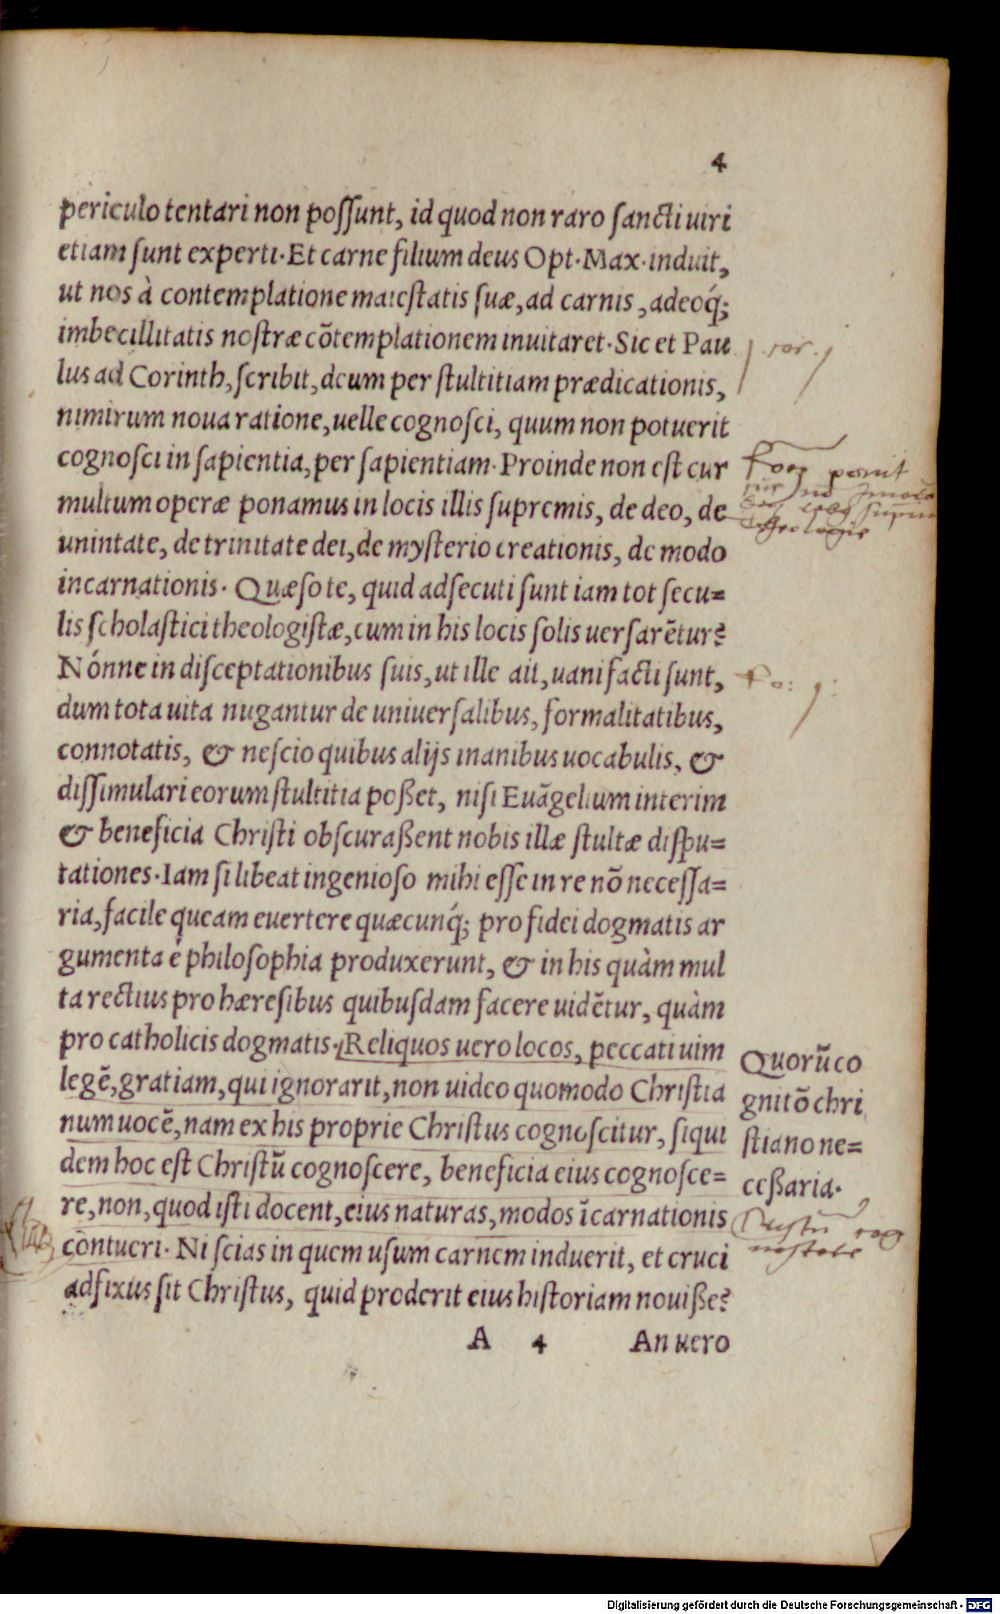 4
periculo tentari non possunt, id quod non raro sancti uiri
etiam sunt experti. Et carne filium deus Opt. Max. induit,
ut nos à contemplatione maiestatis suæ, ad carnis, adeoq́;
imbecillitatis nostræ cõtemplationem inuitaret. Sic et Pau
lus ad Corinth, scribit, deum per stultitiam prædicationis,
nimirum noua ratione, uelle cognosci, quum non potuerit
cognosci in sapientia, per sapientiam. Proinde non est cur
multum operæ ponamus in locis illis supremis, de deo, de
unintate, de trinitate dei, de mysterio creationis, de modo
incarnationis. Quæso te, quid adsecuti sunt iam tot secu=
lis scholastici theologistæ, cum in his locis solis uersarẽtur?
Nónne in disceptationibus suis, ut ille ait, uani facti sunt,
dum tota uita nugantur de uniuersalibus, formalitatibus,
connotatis, & nescio quibus alijs inanibus uocabulis, &
dissimulari eorum stultitia poßet, nisi Euãgelium interim
& beneficia Christi obscuraßent nobis illæ stultæ dispu=
tationes. Iam si libeat ingenioso mihi esse in re nõ necessa=
ria, facile queam euertere quæcunq́; pro fidei dogmatis ar
gumenta è philosophia produxerunt, & in his quàm mul
ta rectius pro hæresibus quibusdam facere uidẽtur, quàm
pro catholicis dogmatis. Reliquos uero locos, peccati uim
legẽ, gratiam, qui ignorarit, non uideo quomodo Christia
num uocẽ, nam ex his proprie Christus cognoscitur, siqui
dem hoc est Christũ cognoscere, beneficia eius cognosce=
re, non, quod isti docent, eius naturas, modos ĩcarnationis
contueri. Ni scias in quem usum carnem induerit, et cruci
adfixus sit Christus, quid proderit eius historiam nouiße?
A 4 An uero
1 cor. 1
Ro: 1:
Quorũ co
gnitõ chri
stiano ne=
ceßaria.
Digitalisierung gefördert durch die Deutsche Forschungsgemeinschaft - DFG